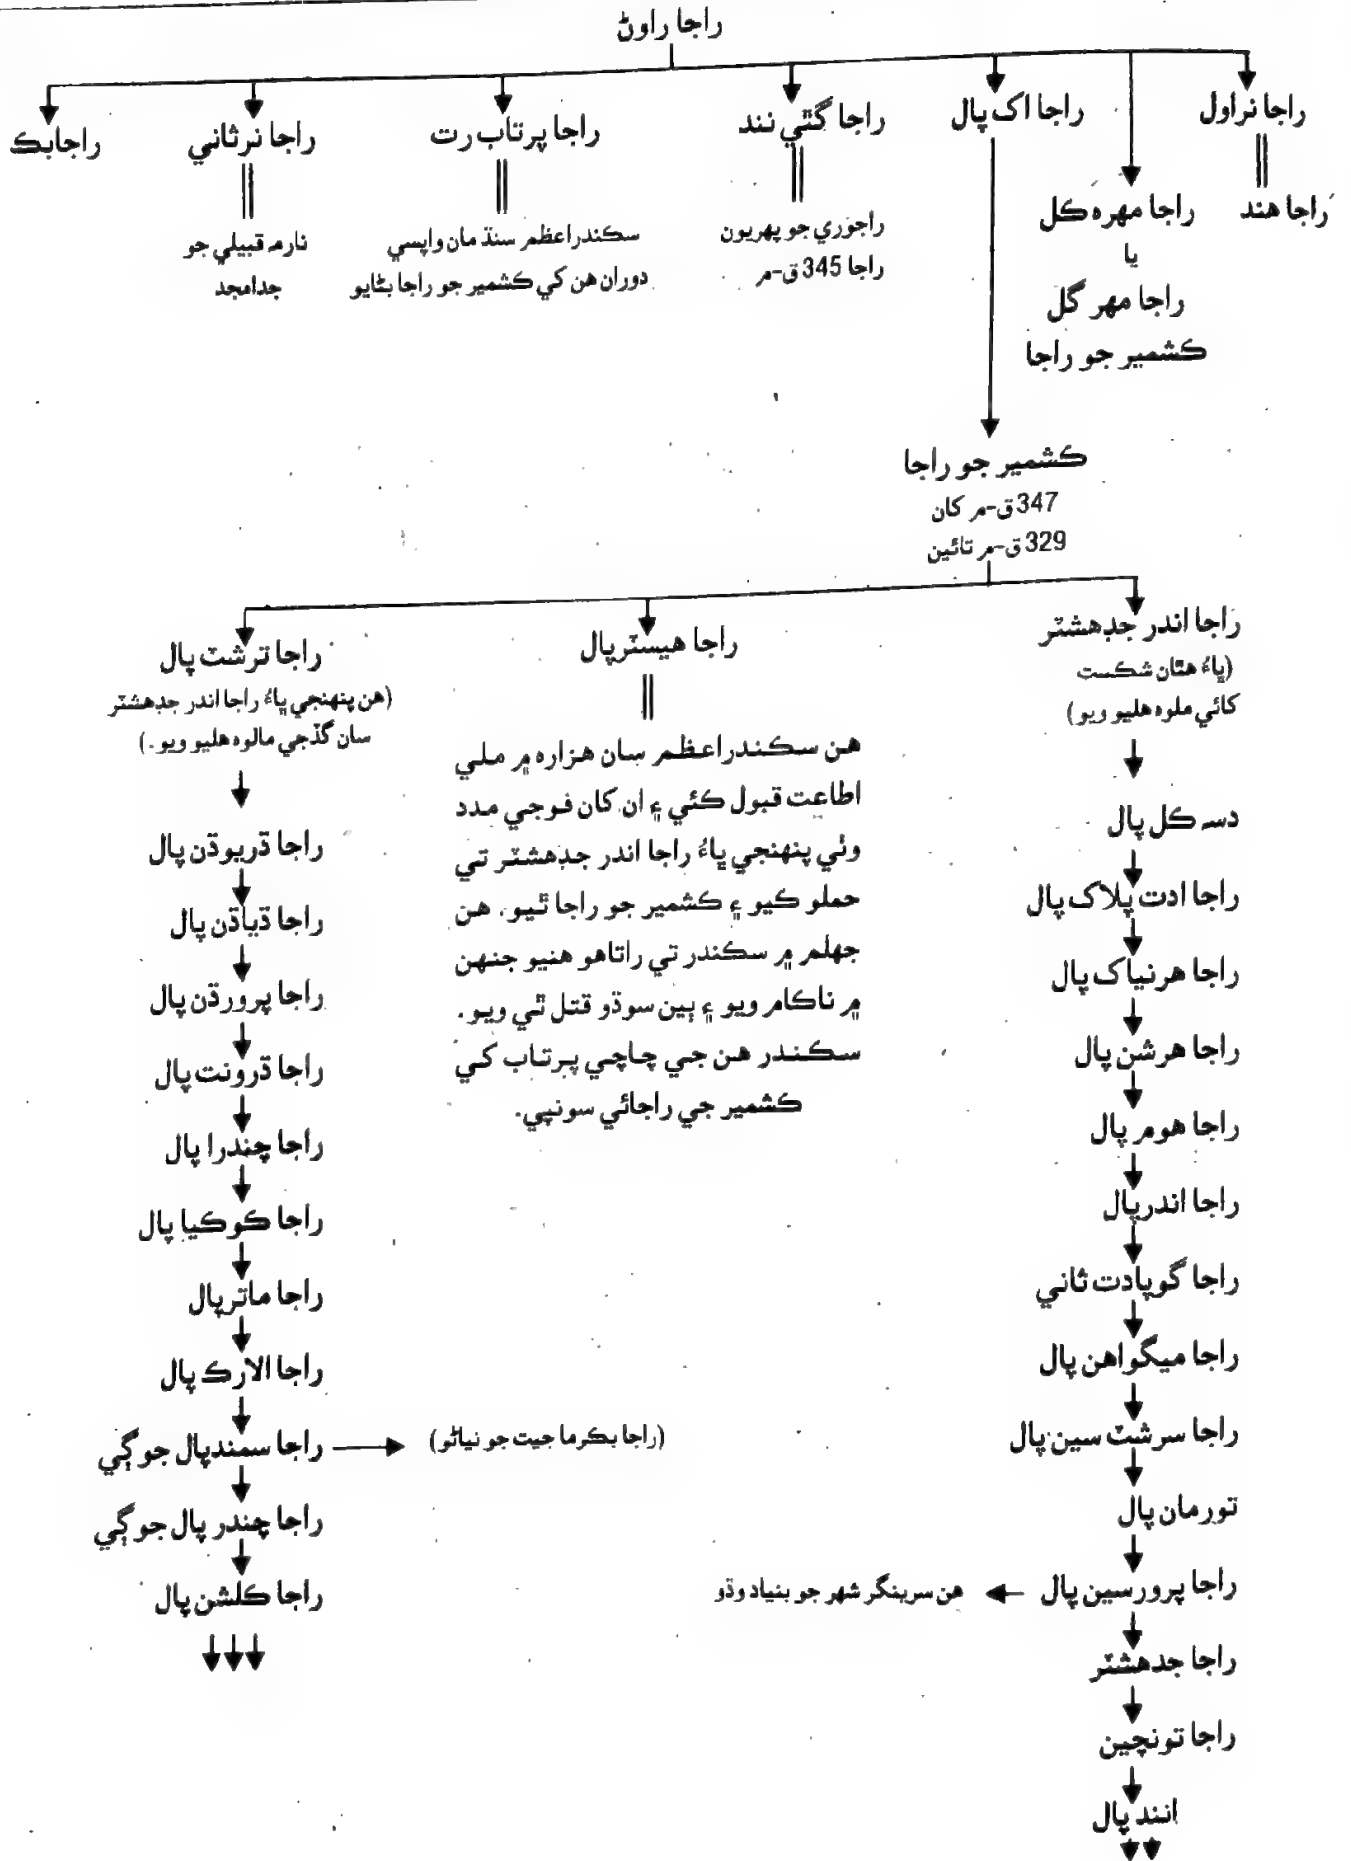 راجا راوڻ
راجا نراول
راجا هند
راجا مهره ڪل
يا
راجا مهر گل
ڪشمير جو راجا
راجا اک پال
راجا گٿي نند
راجوري جو پهريون
راجا 345 ق-م
راجا پرتاب رت
سڪندراعظم سنڌ مان واپسي
دوران هن کي ڪشمير جو راجا بڻايو
راجا نرثاني
نارمہ قبيلي جو
جدامجد
راجابڪ
ڪشمير جو راجا
347 ق-م کان
329 ق-م تائين
راجا اندر جڊهشٽر
(ڀاءُ هٿان شڪست
کائي ملوه هليو ويو)
دسہ ڪل پال
راجا ادت پلاک پال
راجا هرنياک پال
راجا هرشن پال
راجا هوم پال
راجا اندرپال
راجا گوپادت ثاني
راجا ميگواهن پال
راجا سرشٽ سين پال
تورمان پال
راجا پرورسين پال
هن سرينگر شهر جو بنياد وڌو
راجا جدهشٽر
راجا تونچين
انند پال
راجا هيسٽرپال
هن سڪندراعظم سان هزاره ۾ ملي
اطاعت قبول ڪئي ۽ ان کان فوجي مدد
وٺي پنهنجي ڀاءُ راجا اندر جڊهشٽر تي
حملو ڪيو ۽ ڪشمير جو راجا ٿيو. هن
جهلم ۾ سڪندر تي راتاهو هنيو جنهن
۾ ناڪام ويو ۽ ٻين سوڌو قتل ٿي ويو.
سڪندر هن جي چاچي پرتاب کي
ڪشمير جي راجائي سونپي.
راجا ترشٽ پال
(هن پنهنجي ڀاءُ راجا اندر جڊهشٽر
سان گڏجي مالوه هليو ويو.)
راجا ڌريوڌن پال
راجا ڌياڌن پال
راجا پرورڌن پال
راجا ڌرونت پال
راجا چندرا پال
راجا ڪوڪيا پال
راجا ماترپال
راجا الارڪ پال
راجا سمندپال جوڳي
(راجا بڪرما جيت جو نياڻو)
راجا چندر پال جوڳي
راجا ڪلشن پال